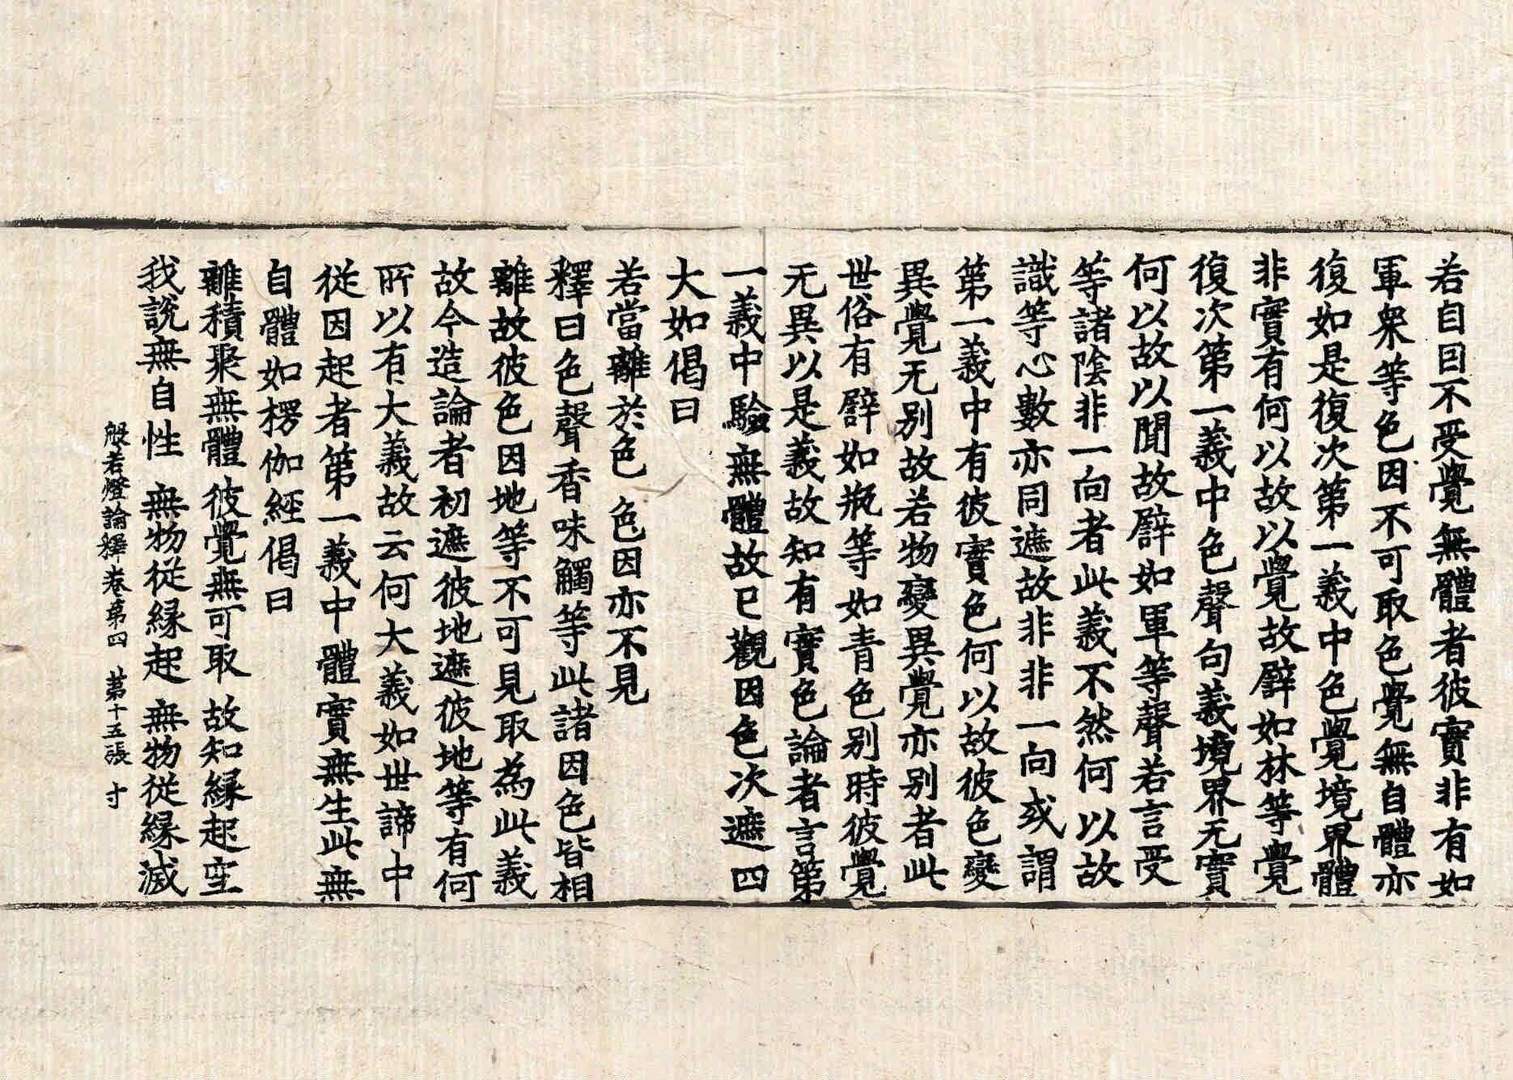 若自因不受覺無體者彼實非有如
軍衆等色因不可取色覺無自體亦
復如是復次第一義中色覺境界體
非實有何以故以覺故譬如林等覺
復次第一義中色聲句義境界无實
何以故以聞故譬如軍等聲若言受
等諸陰非一向者此義不然何以故
識等心數亦同遮故非非一向或謂
第一義中有彼實色何以故彼色變
異覺无別故若物變異覺亦別者此
世俗有譬如瓶等如青色別時彼覺
无異以是義故知有實色論者言第
一義中驗無體故已觀因色次遮四
大如偈曰
若當離於色 色因亦不見
釋曰色聲香味觸等此諸因色皆相
離故彼色因地等不可見取為此義
故今造論者初遮彼地遮彼地等有何
所以有大義故云何大義如世諦中
從因起者第一義中體實無生此無
自體如楞伽經偈曰
離積聚無體 彼覺無可取 故知緣起空
我說無自性 無物從緣起 無物從緣滅
般若燈論釋卷第四 第十五張 寸